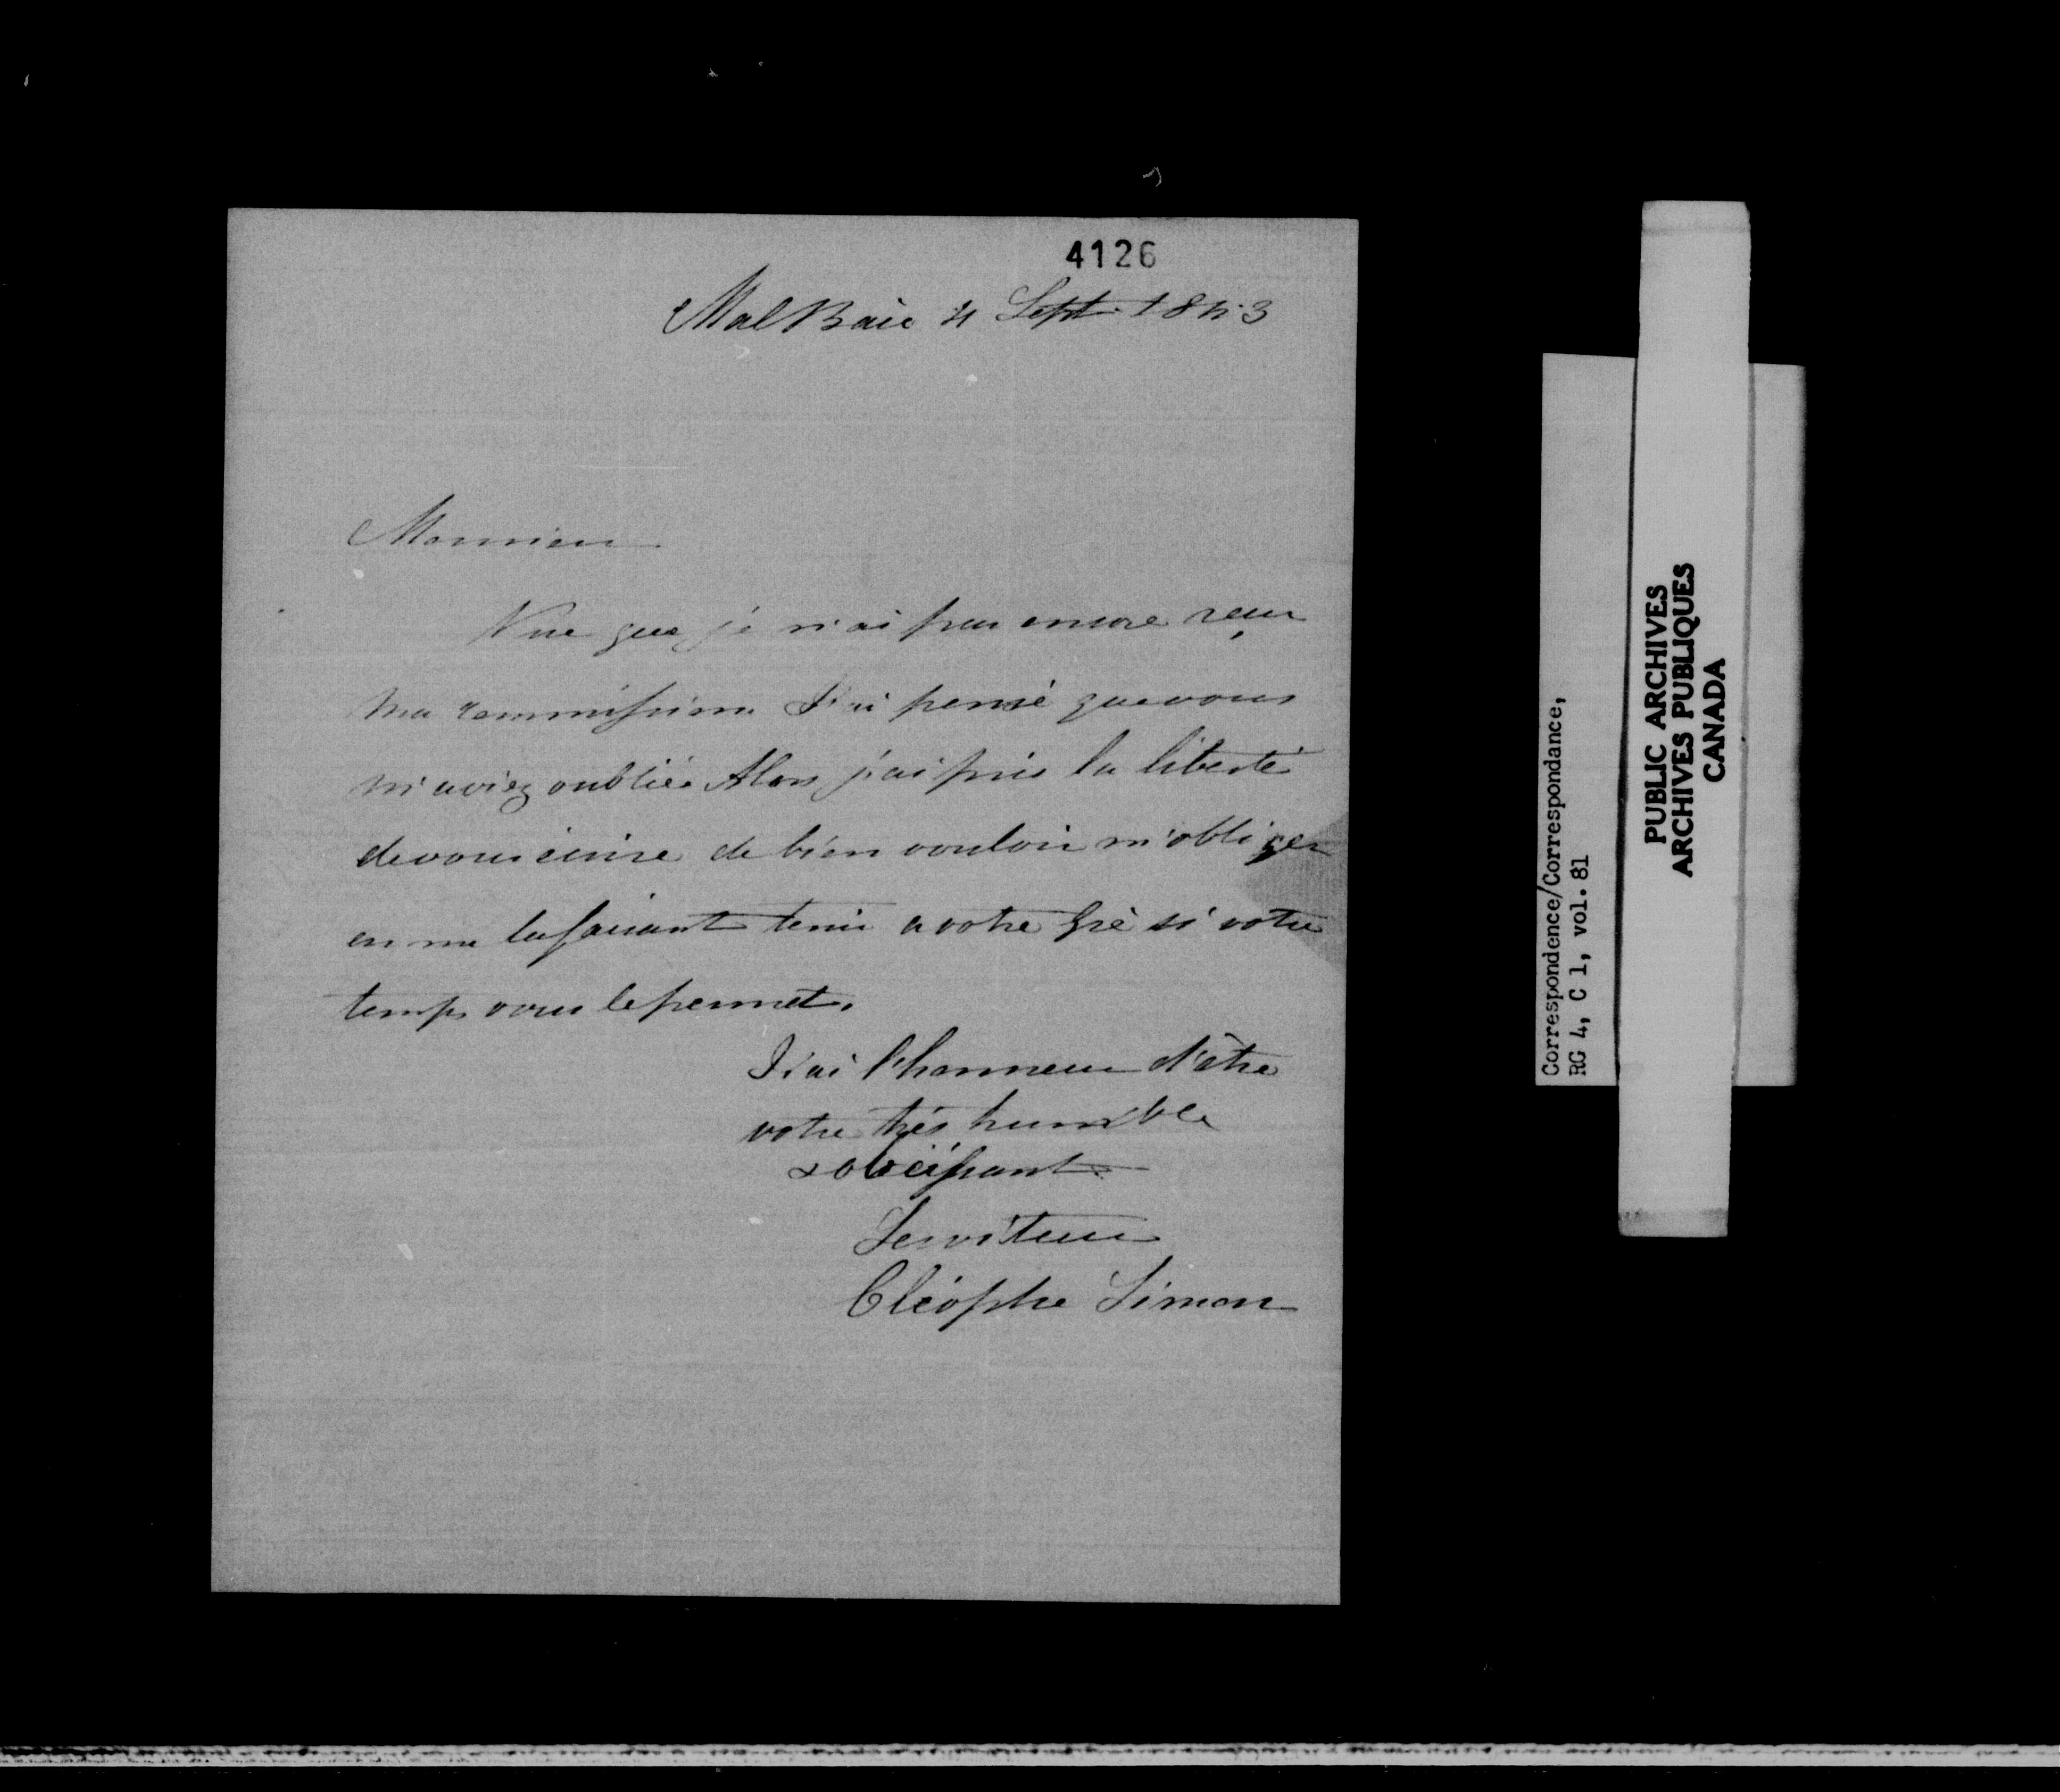 4126
MalBaie 4 Sept. 1843
Monsieur
Vue que je n'ai pas encore reçu
ma commission J'ai pensé que vous
m'aviez oublié. Alors j'ai pris la liberté
de vous écrire de bien vouloir m'obliger
en me la faisant tenir a votre gré si votre
temps vous le permet.
J'ai l'honneur d'être
votre très humble
& obéissant
Serviteur
Cléophe Simon
Correspondence/Correspondance,
RG 4, C 1, vol.81
PUBLIC ARCHIVES
ARCHIVES PUBLIQUES
CANADA